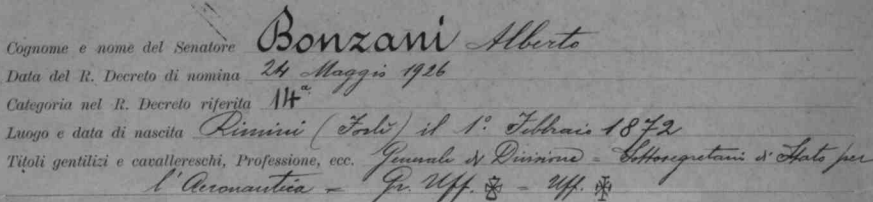 Cognome e nome del Senatore Bonzani Alberto
Data del R. Decreto di nomina 24 Maggio 1926
Categoria nel R. Decreto riferita 14ª
Luogo e data di nascita Rimini (Forlì) il 1º Febbraio 1872
Titoli gentilizi e cavallereschi, Professione, ecc. Generale di Divisione = Sottosegretario di Stato per
l'Aeronautica = Gr. Uff. = Uff.